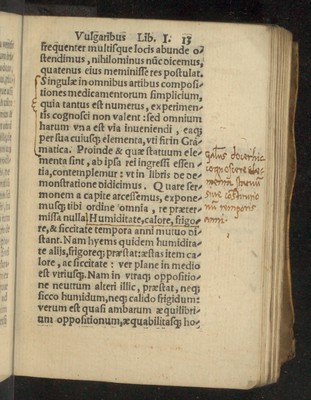 Vulgaribus Lib. I. 13
frequenter multisque locis abunde o-
stendimus, nihilominus nũc dicemus,
quatenus eius meminisse res postulat.
Singulæ in omnibus artibus composi-
tiones medicamentorum simplicium,
quia tantus est numerus, experimen-
tis cognosci non valent: sed omnium
harum vna est via inueniendi, eaq;
per sua cuiusq; elementa, vti fit in Grã-
matica. Proinde & quæ statuum ele-
menta sint, ab ipsa rei ingressi essen-
tia, contemplemur: vt in libris de de-
monstratione didicimus. Quare ser-
monem a capite arcessemus, expone-
musq; tibi ordine omnia, re præter-
missa nulla. Humiditate, calore, frigo-
re, & siccitate tempora anni mutuo di-
stant. Nam hyems quidem humidita-
te alijs, frigoreq; præstat: æstas item ca-
lore, ac siccitate: ver plane in medio
est vtriusq;. Nam in vtraq; oppositio-
ne neutrum alteri illic, præstat, neq;
sicco humidum, neq; calido frigidum:
verum est quasi ambarum æquilibri-
um oppositionum, æquabilitasq; ho-
tempora
anni.